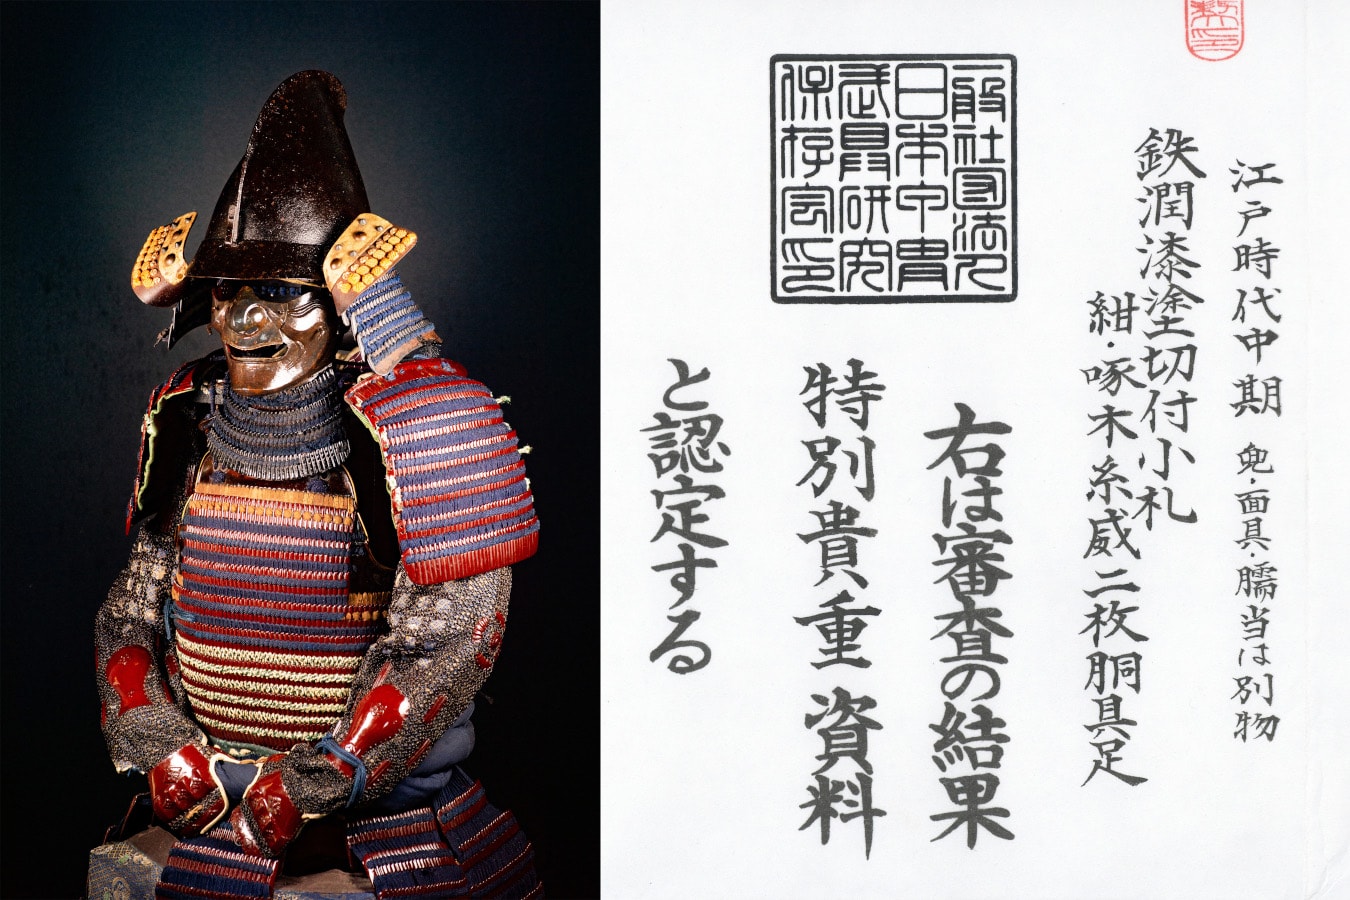 江戸時代中期 兜・面具・臑当は別物
鉄潤漆塗切付小札
紺・啄木糸威二枚胴具足
一般社団法人
日本甲冑
武具研究
保存会印
右は審査の結果
特別貴重資料
と認定する